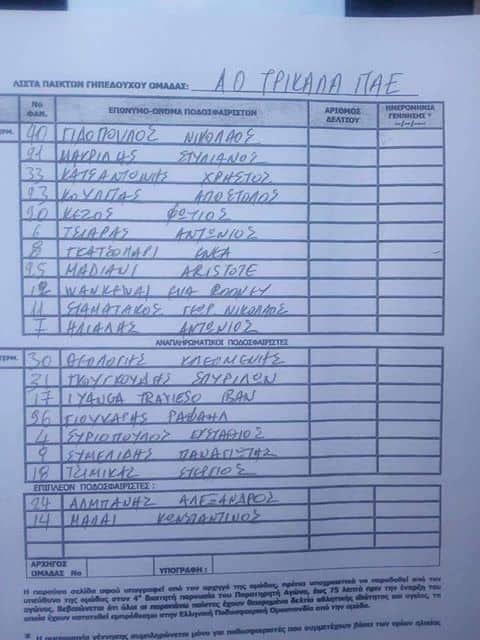 ΛΙΣΤΑ ΠΑΙΚΤΩΝ ΓΗΠΕΔΟΥΧΟΥ ΟΜΑΔΑΣ: ΑΟ ΤΡΙΚΑΛΑ ΠΑΕ
Νο ΦΑΝ. ΕΠΩΝΥΜΟ-ΟΝΟΜΑ ΠΟΔΟΣΦΑΙΡΙΣΤΩΝ ΑΡΙΘΜΟΣ ΔΕΛΤΙΟΥ ΗΜΕΡΟΜΗΝΙΑ ΓΕΝΝΗΣΗΣ * --/--/----
ΤΕΡΜ. 40 ΓΙΔΟΠΟΥΛΟΣ ΝΙΚΟΛΑΟΣ
91 ΜΑΚΡΙΔΗΣ ΣΤΥΛΙΑΝΟΣ
33 ΚΑΤΣΑΝΤΩΝΗΣ ΧΡΗΣΤΟΣ
23 ΚΟΥΛΠΑΣ ΑΠΟΣΤΟΛΟΣ
90 ΚΕΖΟΣ ΦΩΤΙΟΣ
6 ΤΣΙΑΡΑΣ ΑΝΤΩΝΙΟΣ
8 ΓΚΑΤΣΟΜΑΡΙ ΕΝΕΑ
95 MADIANI ARISTOTE
12 WANKEWAI RODNEY
11 ΣΤΑΜΑΤΑΚΟΣ ΓΕΩΡ. ΝΙΚΟΛΑΟΣ
7 ΗΛΙΑΔΗΣ ΑΝΤΩΝΙΟΣ
ΑΝΑΠΛΗΡΩΜΑΤΙΚΟΙ ΠΟΔΟΣΦΑΙΡΙΣΤΕΣ
ΤΕΡΜ. 30 ΘΕΟΛΟΓΗΣ ΚΛΕΟΜΕΝΗΣ
21 ΓΚΟΥΓΚΟΥΔΗΣ ΣΠΥΡΙΔΩΝ
17 IYANGA TRAVIESO IBAN
96 ΓΙΟΥΚΑΡΗΣ ΡΑΦΑΗΛ
4 ΣΥΡΙΟΠΟΥΛΟΣ ΕΥΣΤΑΘΙΟΣ
9 ΣΥΜΕΛΙΔΗΣ ΠΑΝΑΓΙΩΤΗΣ
18 ΤΖΙΜΙΚΑΣ ΣΤΕΡΓΙΟΣ
ΕΠΙΠΛΕΟΝ ΠΟΔΟΣΦΑΙΡΙΣΤΕΣ :
24 ΑΛΜΠΑΝΗΣ ΑΛΕΞΑΝΔΡΟΣ
14 ΜΑΛΑΙ ΚΩΝΣΤΑΝΤΙΝΟΣ
ΑΡΧΗΓΟΣ ΟΜΑΔΑΣ Νο ΥΠΟΓΡΑΦΗ :
Η παρούσα σελίδα αφού υπογραφεί από τον αρχηγό της ομάδας, πρέπει υποχρεωτικά να παραδοθεί από τον
υπεύθυνο της ομάδας στον 4° διαιτητή παρουσία του Παρατηρητή Αγώνα, έως 75 λεπτά πριν την έναρξη του
αγώνος. Βεβαιώνεται ότι όλοι οι παραπάνω παίκτες έχουν θεωρημένο δελτίο αθλητικής ιδιότητας και υγείας, το
οποίο έχουν κατατεθεί εμπρόθεσμα στην Ελληνική Ποδοσφαιρική Ομοσπονδία από την ομάδα.
* Η ημερομηνία γέννησης συμπληρώνεται μόνο για ποδοσφαιριστές που συμμετέχουν βάσει των ορίων ηλικίας